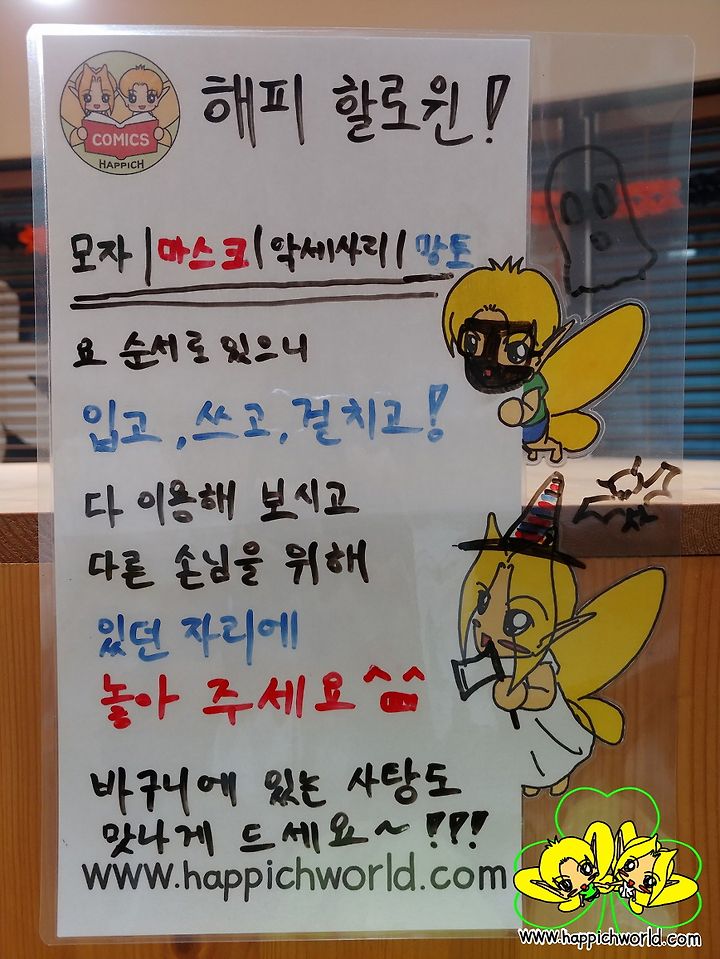 COMICS
HAPPICH
해피 할로윈!
모자|마스크|악세사리|망토
요 순서로 있으니
입고,쓰고,걸치고!
다 이용해 보시고
다른 손님을 위해
있던 자리에
놓아 주세요^^
바구니에 있는 사탕도
맛나게 드세요~!!!
www.happichworld.com
www.happichworld.com